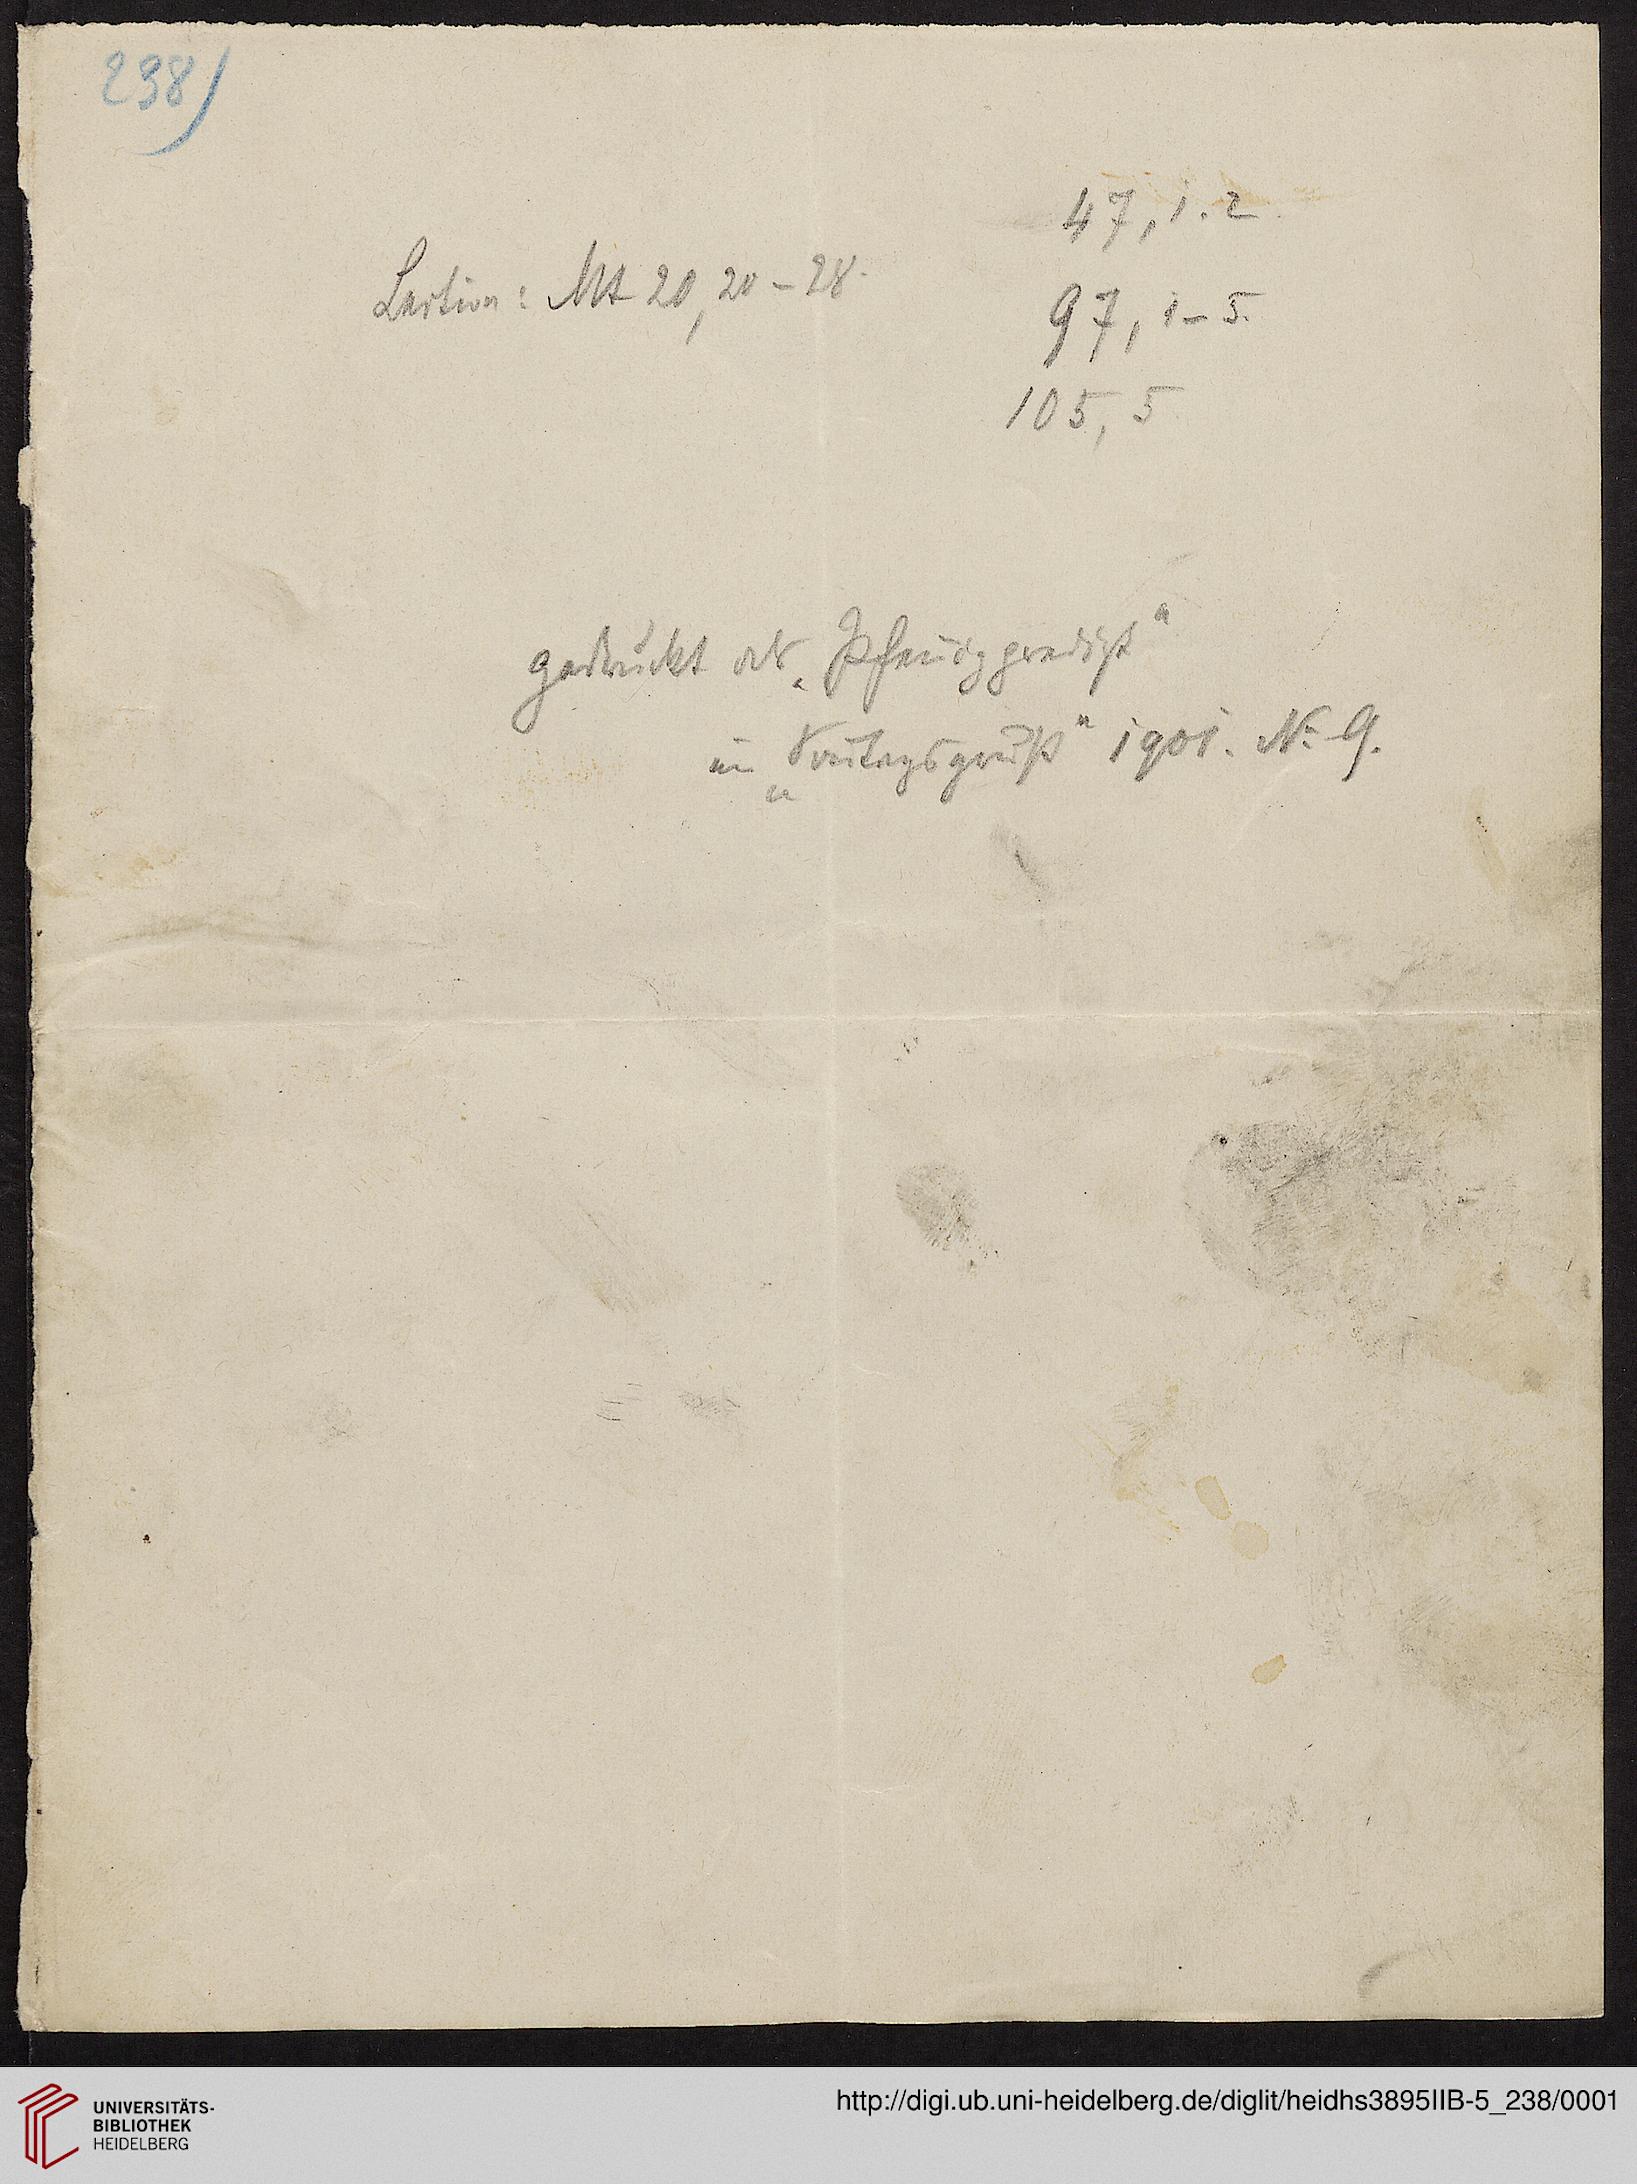 238)
47, 1. 2.
Lection: Mt 20, 20-28.
97, 1-5.
105, 5
gedruckt als „Pfennigpredigt“
im „Sonntagsgruß“ 1901. No 9.
UNIVERSITÄTS-
BIBLIOTHEK
HEIDELBERG
http://digi.ub.uni-heidelberg.de/diglit/heidhs3895IIB-5_238/0001